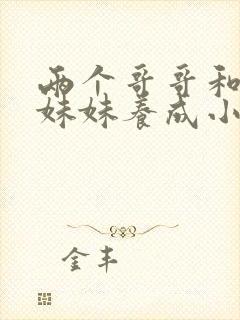 两个哥哥和
妹妹养成小
金丰